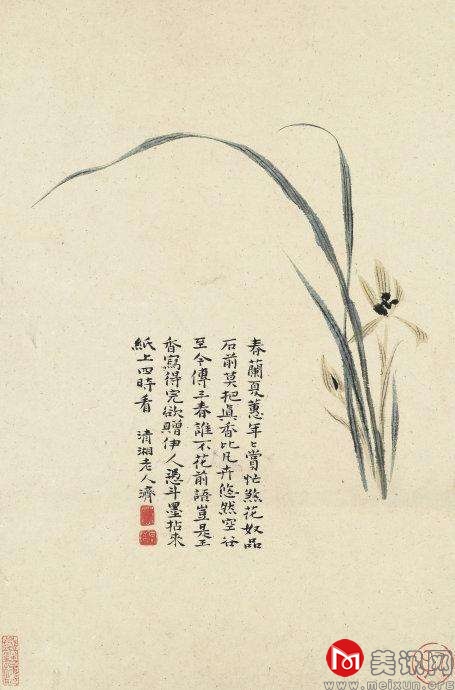 春蘭夏蕙年々賞忙煞花奴品
石前莫把真香比凡卉悠然空谷
至今傳三春誰不花前語豈是玉
香寫得完欲贈伊人憑斗墨拈來
紙上四時看 清湘老人濟
美讯网
www.meixun.org